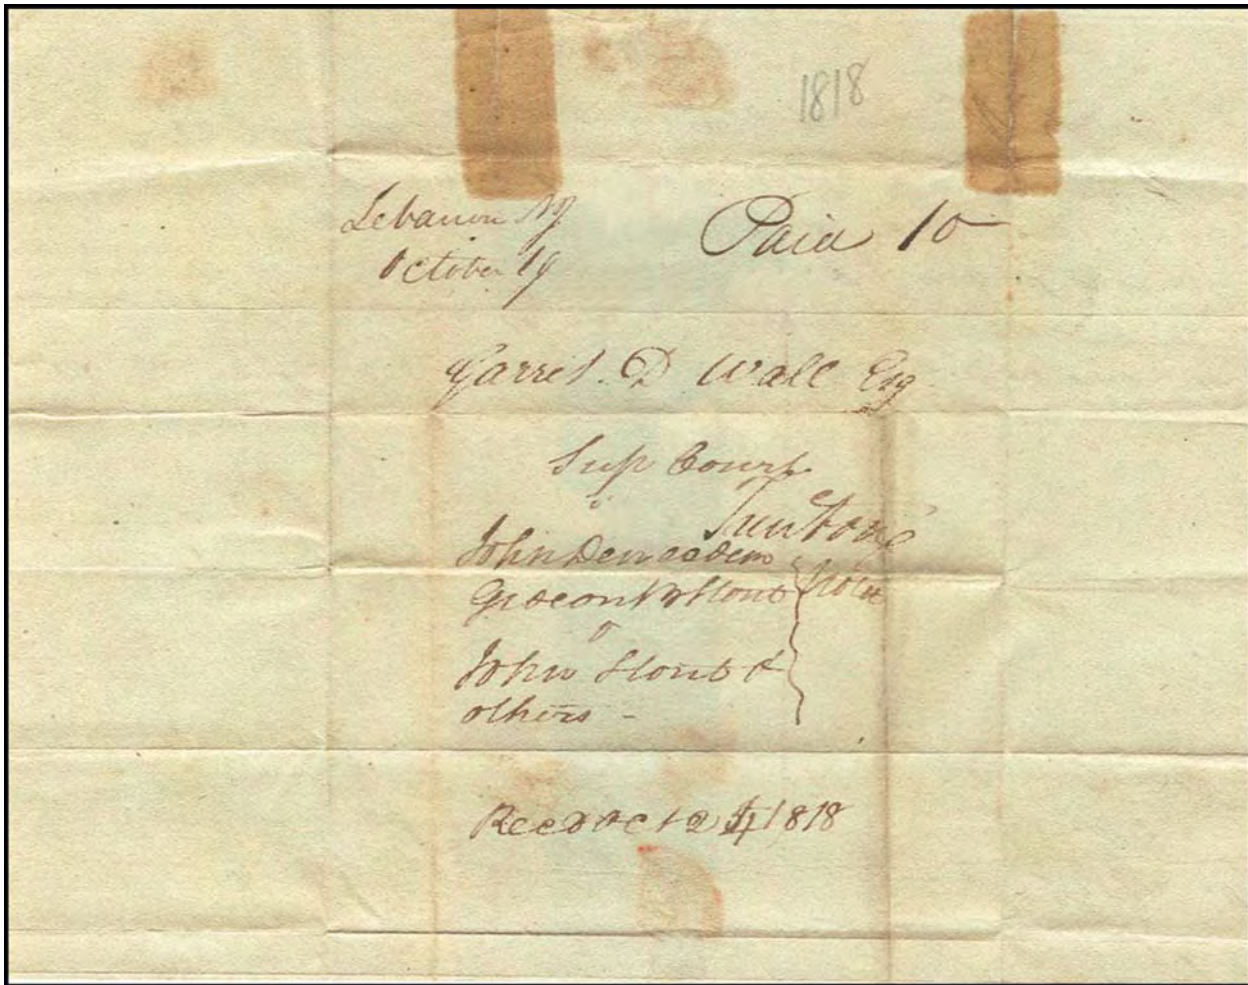 1818
Lebanon NJ Paid 10
October 19
Garret D Wall Esq
Sup Court
Trenton
John Den ex dem
Gideon B Stout
v
John Stout &
others -
Recd Oct 24 1818